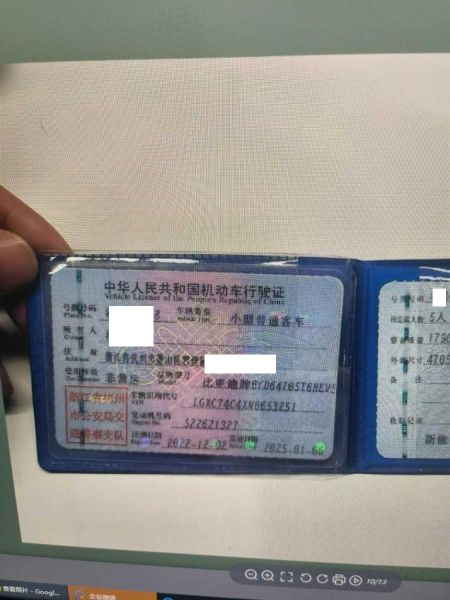 中华人民共和国机动车行驶证
Vehicle License of the People's Republic of China
号牌号码
Plate No.
8
车辆类型
Vehicle Type
小型普通客车
所有人
Owner
住址
Address
使用性质
Use Character
非营运
品牌型号
Model
比亚迪牌BYD6470ST6HEV5
浙江省杭州
市公安局交
通警察支队
车辆识别代号
VIN
LGXC74C4XN0653251
发动机号码
Engine No.
522621327
注册日期
2022-12-02
发证日期
2025-01-
号牌号码
核定载人数 5人
整备质量 175
外廓尺寸 470
备注
检验记录
新能
查看照片 - Googl...
企业微信
10/13